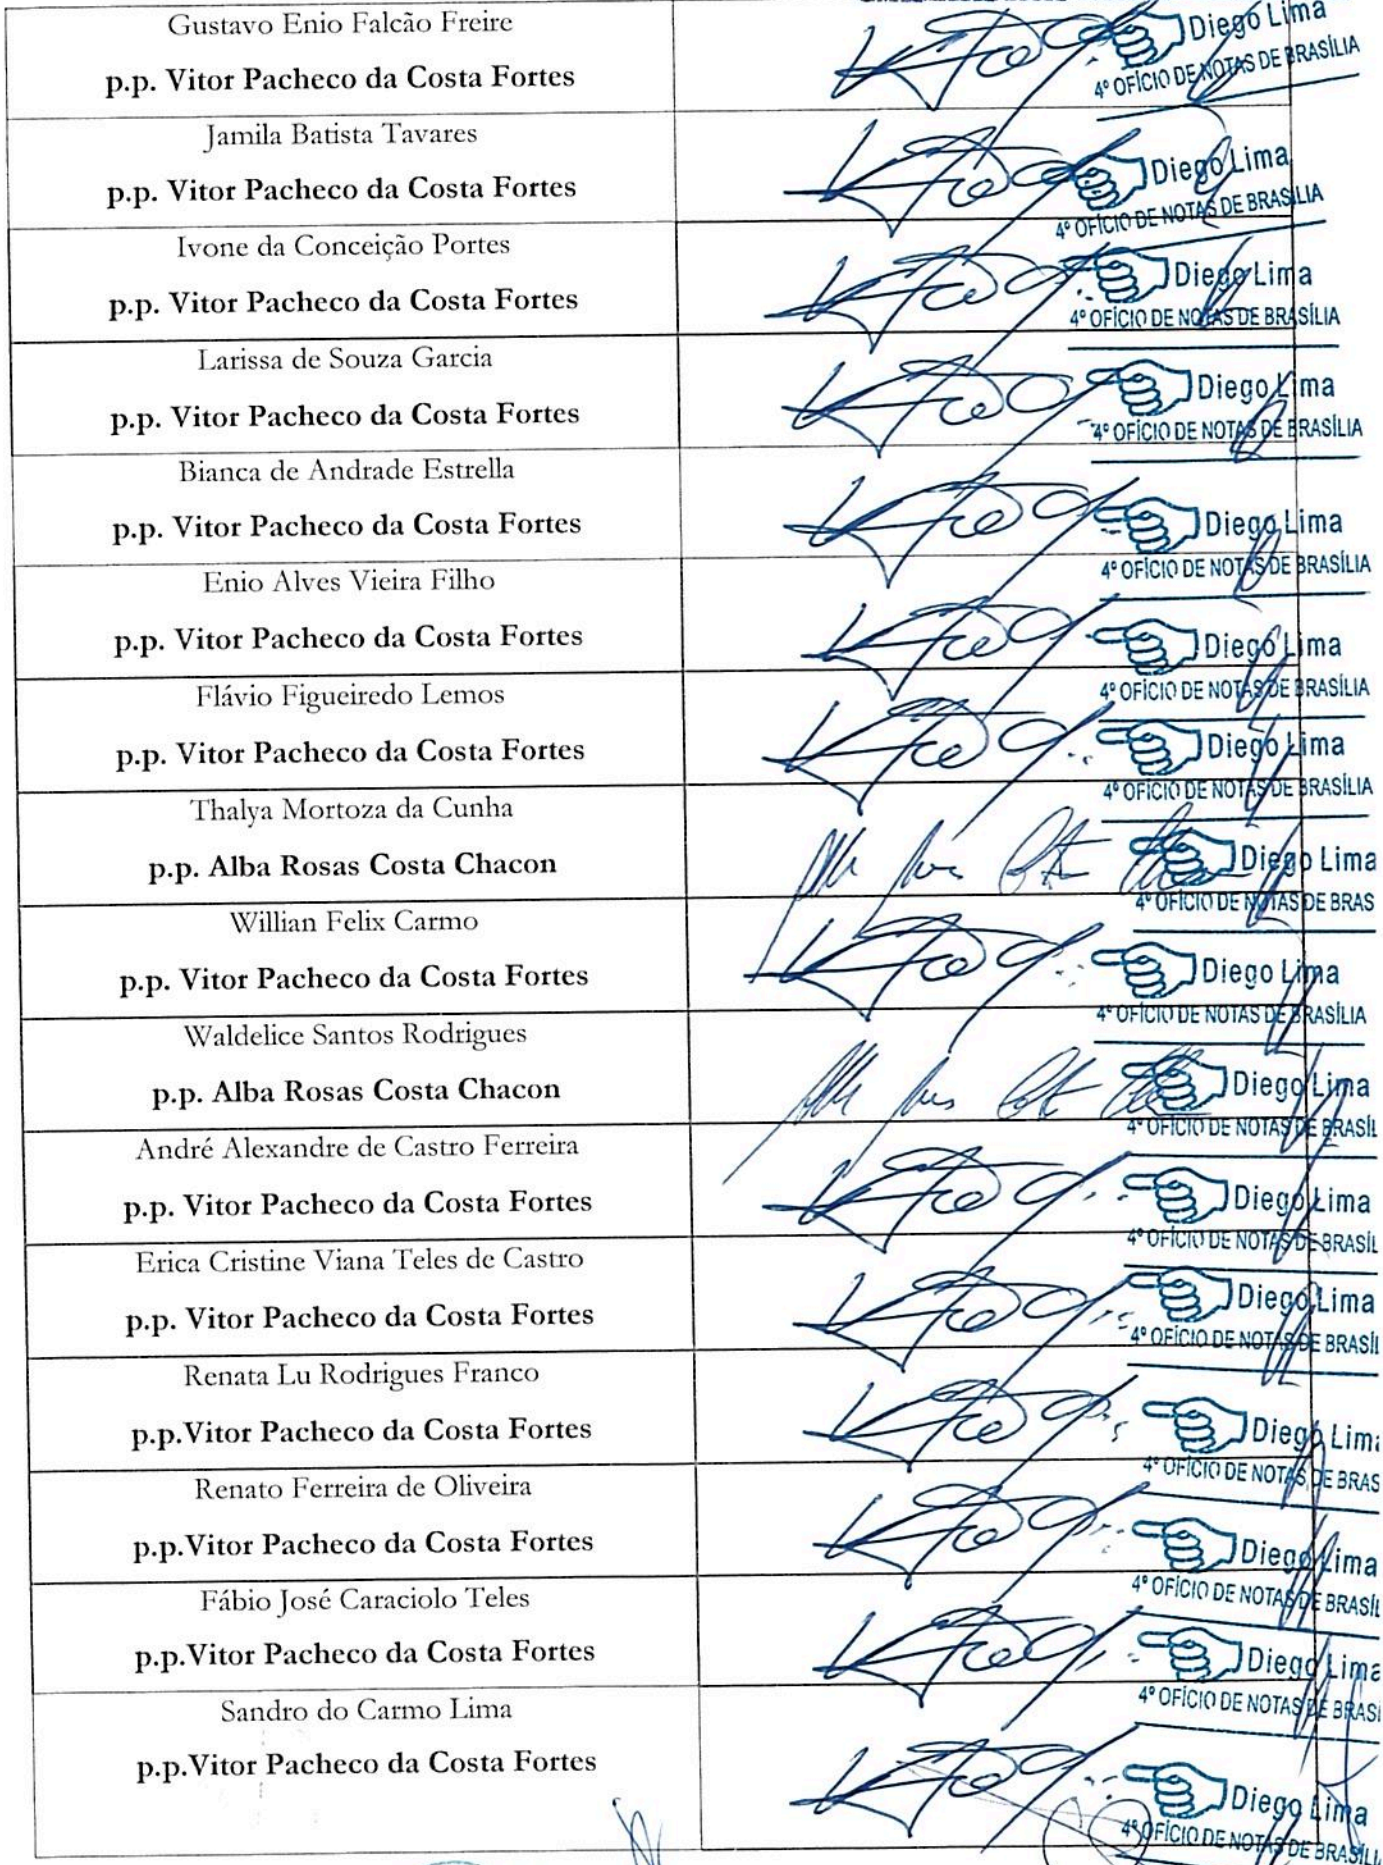 Gustavo Enio Falcão Freire
p.p. Vitor Pacheco da Costa Fortes
Diego Lima
4º OFÍCIO DE NOTAS DE BRASÍLIA
Jamila Batista Tavares
p.p. Vitor Pacheco da Costa Fortes
Diego Lima
4º OFÍCIO DE NOTAS DE BRASÍLIA
Ivone da Conceição Portes
p.p. Vitor Pacheco da Costa Fortes
Diego Lima
4º OFÍCIO DE NOTAS DE BRASÍLIA
Larissa de Souza Garcia
p.p. Vitor Pacheco da Costa Fortes
Diego Lima
4º OFÍCIO DE NOTAS DE BRASÍLIA
Bianca de Andrade Estrella
p.p. Vitor Pacheco da Costa Fortes
Diego Lima
4º OFÍCIO DE NOTAS DE BRASÍLIA
Enio Alves Vieira Filho
p.p. Vitor Pacheco da Costa Fortes
Diego Lima
4º OFÍCIO DE NOTAS DE BRASÍLIA
Flávio Figueiredo Lemos
p.p. Vitor Pacheco da Costa Fortes
Diego Lima
4º OFÍCIO DE NOTAS DE BRASÍLIA
Thalya Mortoza da Cunha
p.p. Alba Rosas Costa Chacon
Diego Lima
4º OFÍCIO DE NOTAS DE BRAS
Willian Felix Carmo
p.p. Vitor Pacheco da Costa Fortes
Diego Lima
4º OFÍCIO DE NOTAS DE BRASÍLIA
Waldelice Santos Rodrigues
p.p. Alba Rosas Costa Chacon
Diego Lima
4º OFÍCIO DE NOTAS DE BRASÍL
André Alexandre de Castro Ferreira
p.p. Vitor Pacheco da Costa Fortes
Diego Lima
4º OFÍCIO DE NOTAS DE BRASÍL
Erica Cristine Viana Teles de Castro
p.p. Vitor Pacheco da Costa Fortes
Diego Lima
4º OFÍCIO DE NOTAS DE BRASÍL
Renata Lu Rodrigues Franco
p.p.Vitor Pacheco da Costa Fortes
Diego Lima
4º OFÍCIO DE NOTAS DE BRAS
Renato Ferreira de Oliveira
p.p.Vitor Pacheco da Costa Fortes
Diego Lima
4º OFÍCIO DE NOTAS DE BRASÍL
Fábio José Caraciolo Teles
p.p.Vitor Pacheco da Costa Fortes
Diego Lima
4º OFÍCIO DE NOTAS DE BRASÍ
Sandro do Carmo Lima
p.p.Vitor Pacheco da Costa Fortes
Diego Lima
4º OFÍCIO DE NOTAS DE BRASÍLI